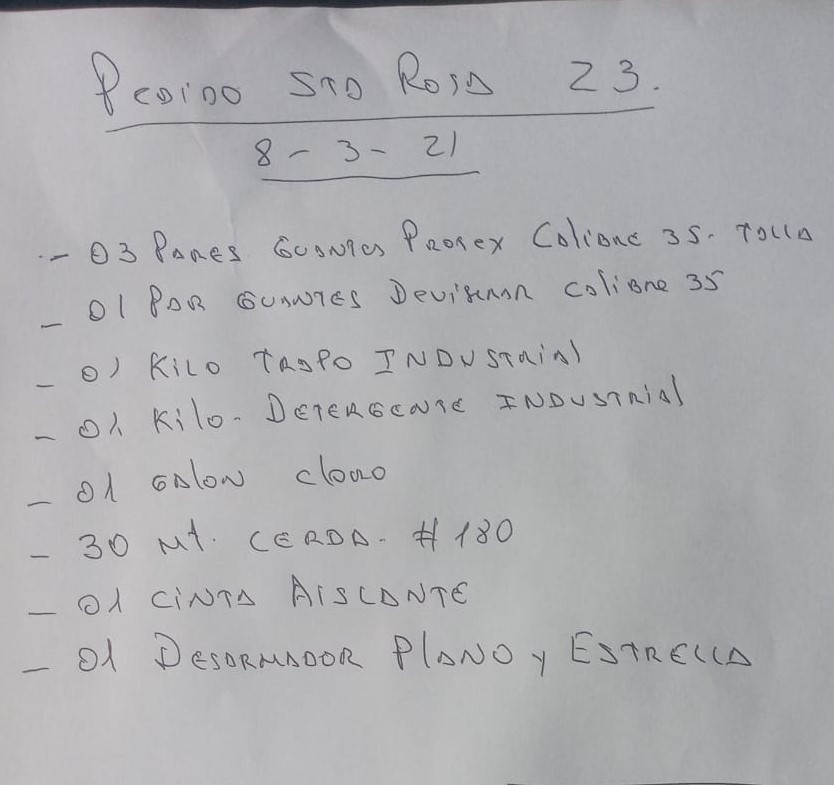 PEDIDO STA ROSA 23.
8-3-21
- 03 PARES GUANTES PROREX CALIBRE 35. TALLA
- 01 PAR GUANTES CALIBRE 35
- 01 KILO TRAPO INDUSTRIAL
- 01 KILO. DETERGENTE INDUSTRIAL
- 01 GALON CLORO
- 30 Mt. CERDA. # 180
- 01 CINTA AISLANTE
- 01 DESARMADOR PLANO y ESTRELLA